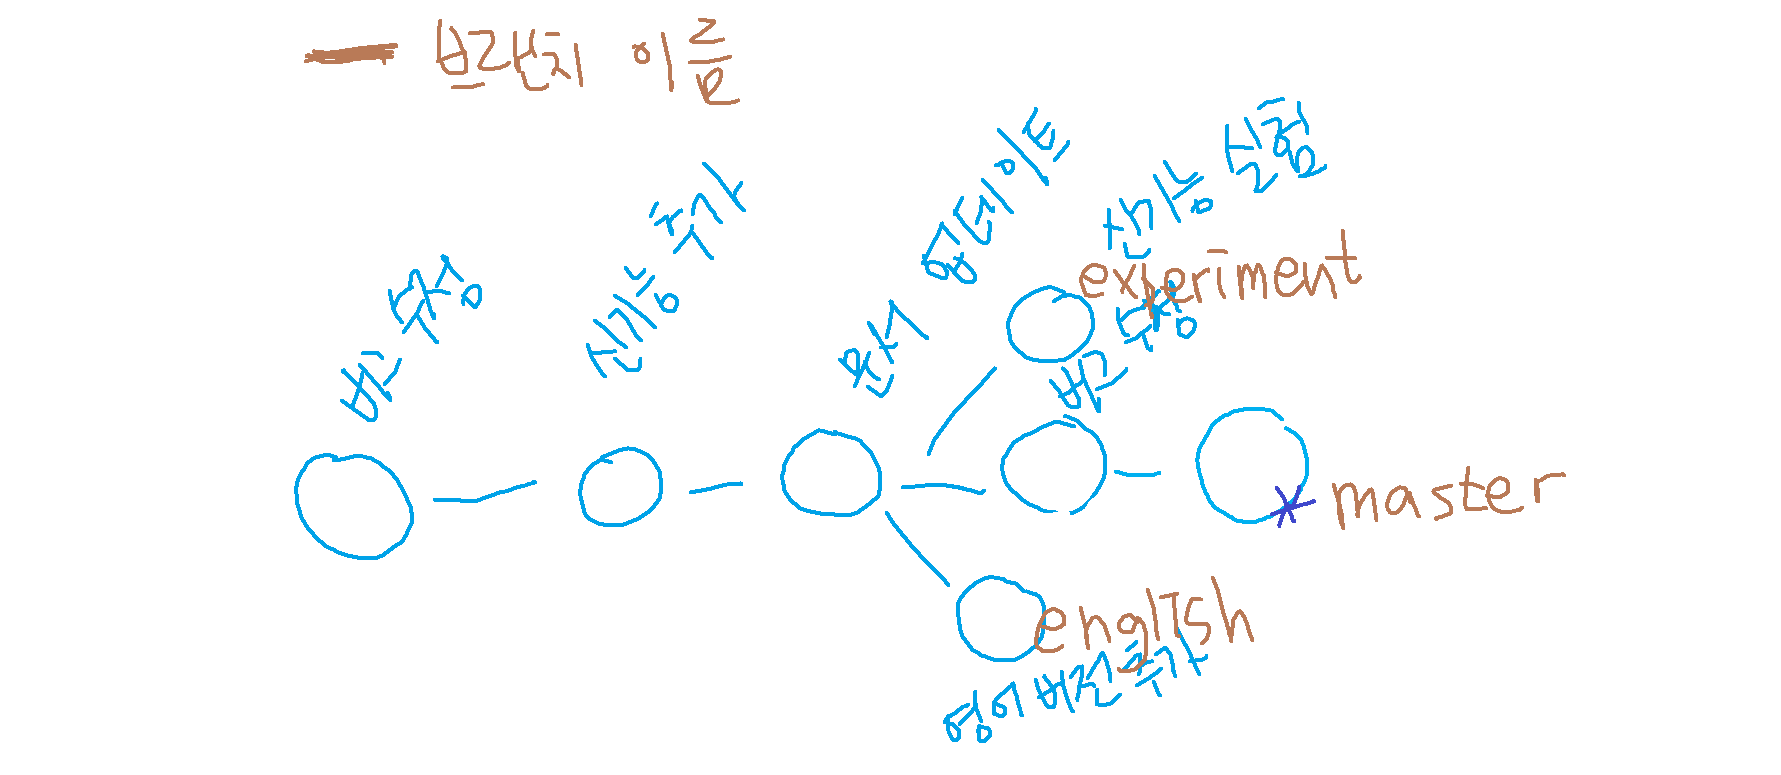 브랜치 이름
버그 수정
신기능 추가
문서 업데이트
신기능 실험
experiment
버그 수정
* master
english
영어 버전 추가